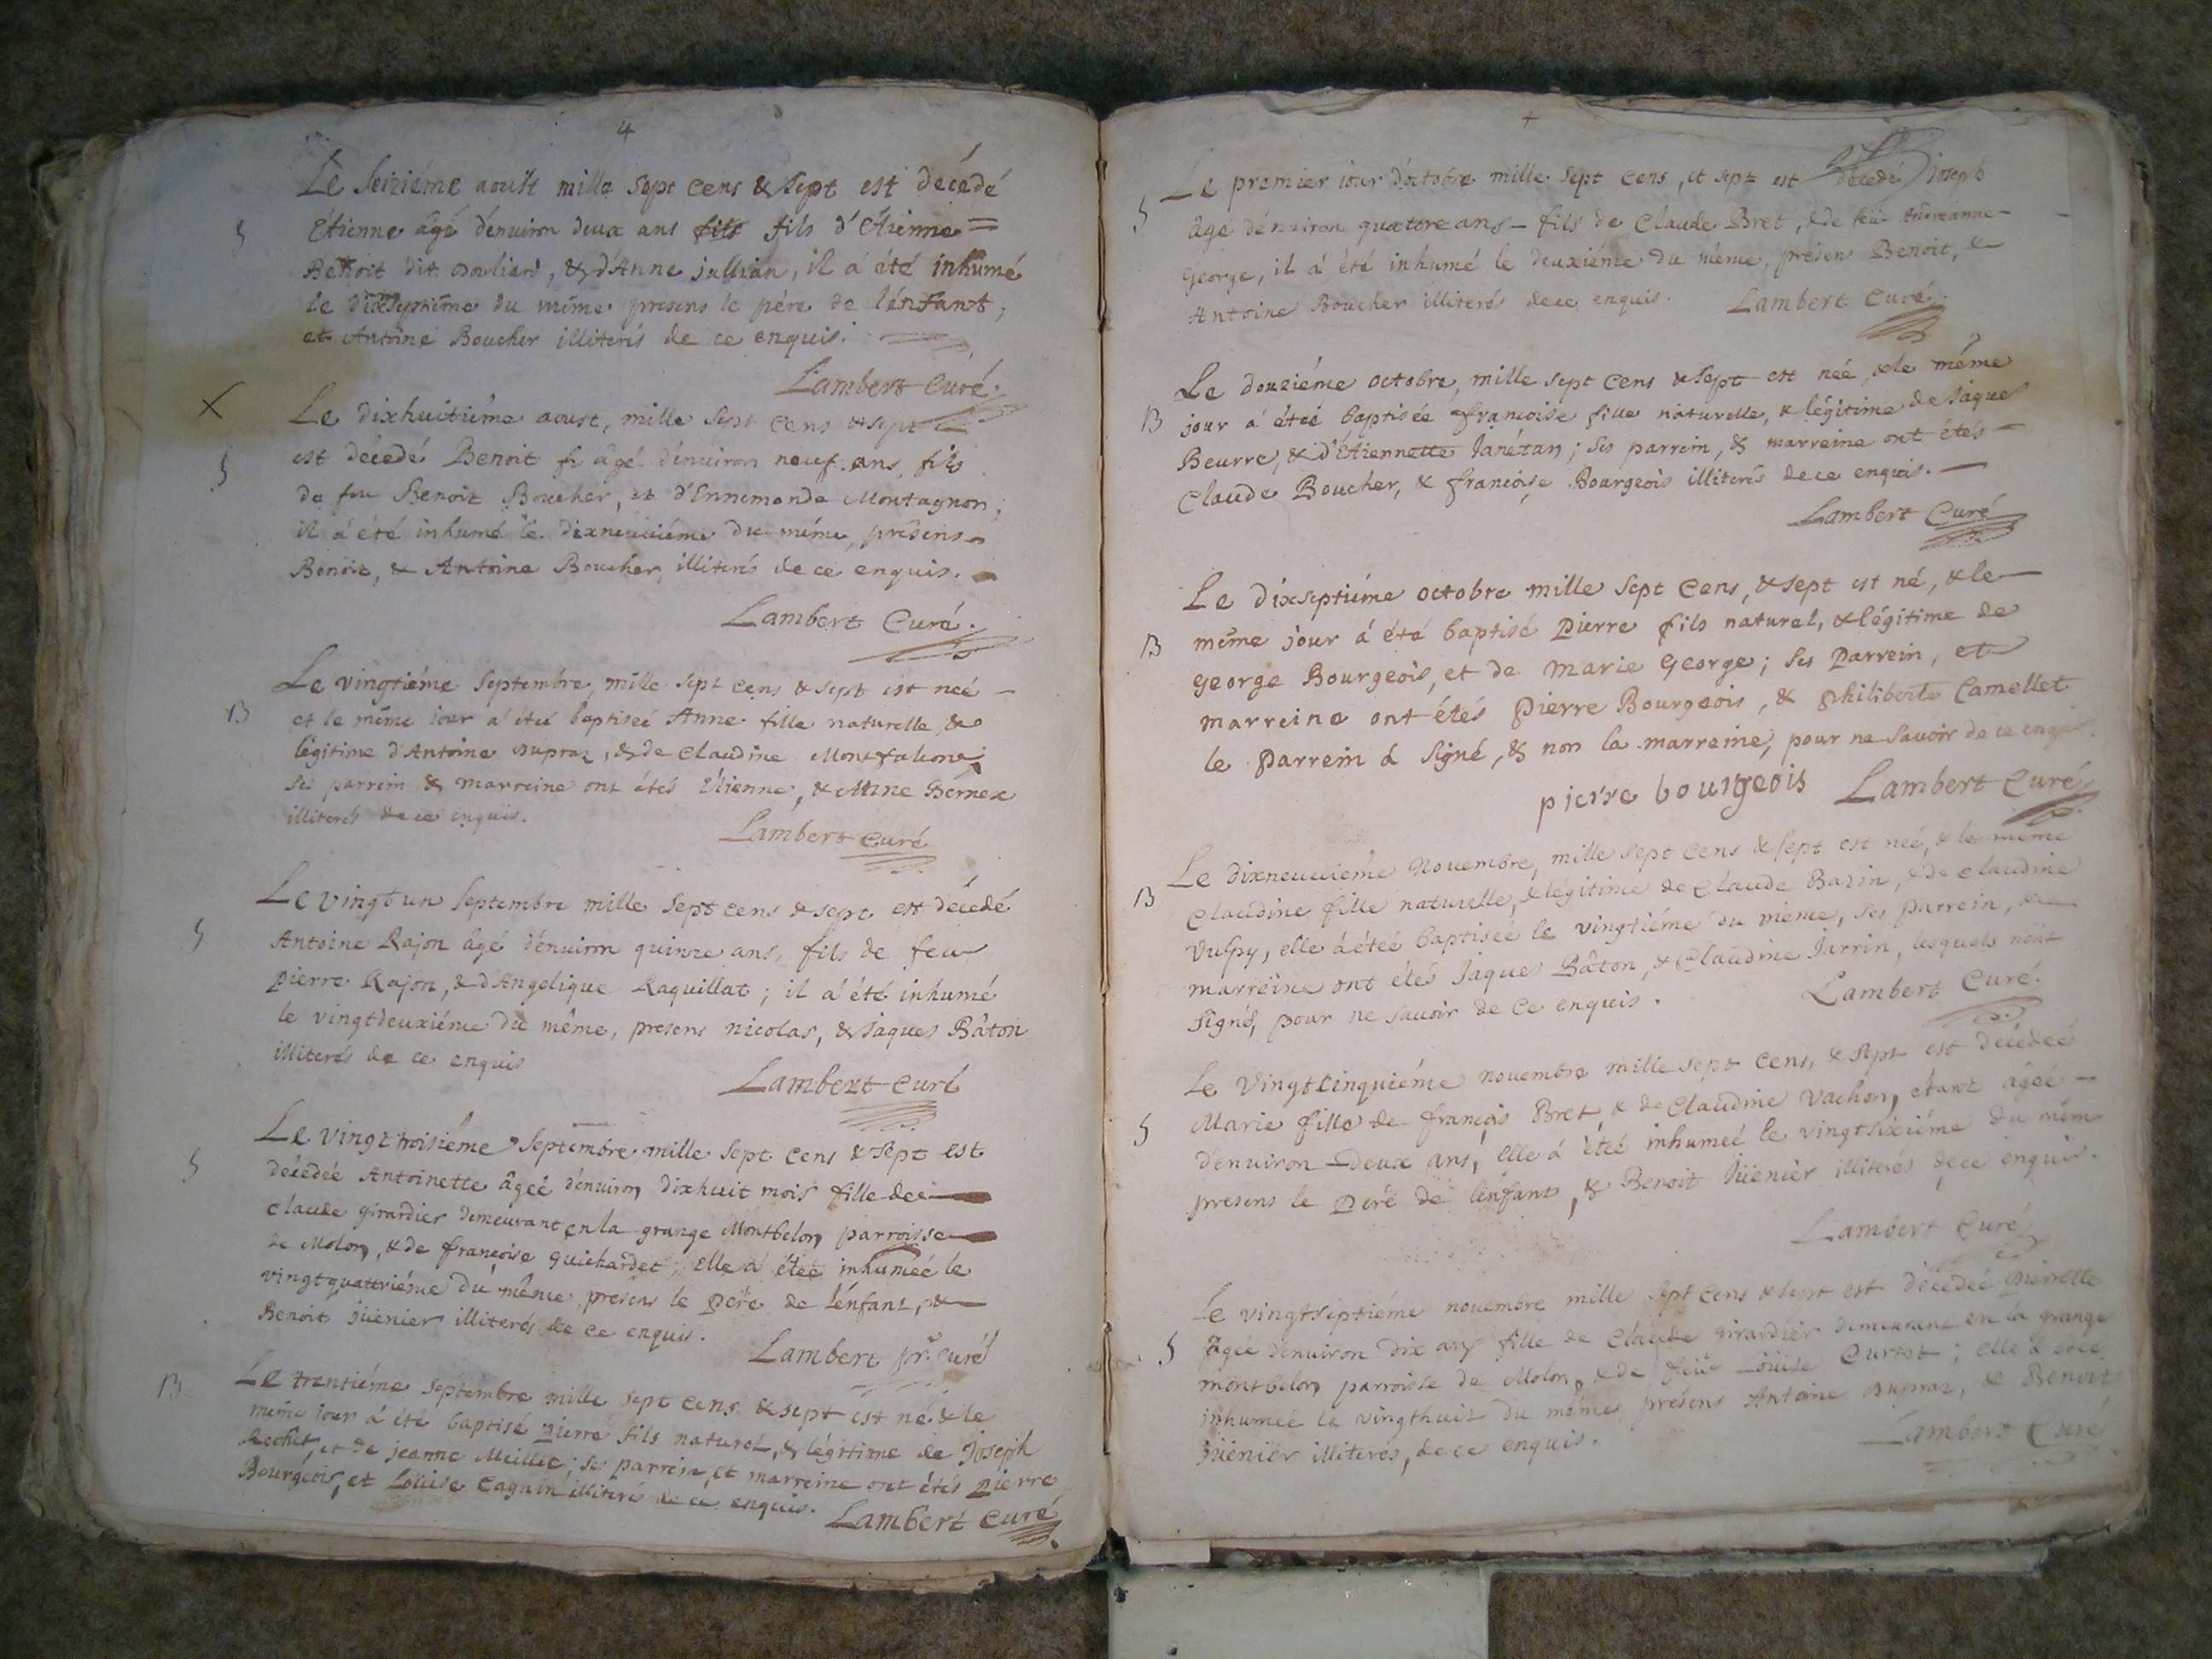 4
Le Seiziéme aoust mille Sept Cens & Sept est décedé
S
Etienne âgé d'enuiron deux ans fils fils d'Etienne =
Benoit dit , & d'Anne jullian, il a été inhumé
le dixseptiéme du même presens le pére de l'énfant,
et Antoine Boucher illiterés de ce enquis.
Lambert Curé.
X
Le dixhuitiéme aoust, mille Sept Cens & sept
S
est décedé Benoit fi âgé d'enuiron neuf ans, fils
de feu Benoit Boucher, et d'Ennemonde Montagnon;
il á été inhumé le dixneuuiéme du même, présens
Benoit, & Antoine Boucher, illiterés de ce enquis.
Lambert Curé.
Le vingtiéme Septembre, mille Sept Cens & Sept est neé
B
et le même iour a éteé baptiseé Anne fille naturelle, &
légitime d'Antoine Dupraz, & de Claudine
Ses parrein & marreine ont étés Etienne, & Anne Bernex
illiterés de ce enquis.
Lambert Curé
Le vingt un Septembre mille Sept cens & sept est décedé
S
Antoine Rajon âgé d'enuiron quinze ans, fils de feu
Pierre Rajon, & d'Angelique Raquillat; il á été inhumé
le vingtdeuxiéme du même, presens nicolas, & jaques Bâton
illiterés de ce enquis
Lambert Curé
Le vingttroisiéme Septembre mille Sept Cens & Sept est
S
décedeé Antoinette âgeé d'enuiron dixhuit mois fille de
Claude girardier demeurant en la grange Montbelon parroisse
de Molon, & de françoise guichardet; elle á éteé inhumeé le
vingtquattriéme du même, presens le pere de l'énfant, &
Benoit jüenier illiterés de ce enquis.
Lambert pr. curé
Le trentiéme septembre mille sept cens & sept est né & le
B
même iour á été baptisé Pierre fils naturel, & légitime de Joseph
Rochet, et de jeanne ; ses parrein, et marreine ont étés Pierre
Bourgeois, et Loüise Cagnin illiterés de ce enquis.
Lambert Curé
+
Le premier iour d'octobre mille Sept Cens, et sept est décedé Joseph
S
âgé d'énuiron quatore ans - fils de Claude Bret, & de feüe Andréanne
George, il á été inhumé le deuxiéme du même, présens Benoit, &
Antoine Boucher illiterés de ce enquis. Lambert Curé
Le douziéme octobre, mille sept Cens & Sept est neé, & le même
B
jour á éteé baptisée françoise fille naturelle, & légitime de Jaque
Beurre, & d'Etiennette Janézan; Ses parrein, & marreine ont étés
Claude Boucher, & françoise Bourgeois illiterés de ce enquis.
Lambert Curé
Le dixseptiéme octobre mille Sept Cens, & sept est né, & le
B
même jour á été baptisé Pierre fils naturel, & légitime de
George Bourgeois, et de Marie George; Ses Parrein, et
marreine ont étés Pierre Bourgeois, & Philiberte Camellet
le Parrein á Signé, & non la marreine, pour ne Sauoir de ce enquis.
pierre bourgeois Lambert Curé
Le dixneuuiéme Nouembre, mille Sept Cens & sept est neé, & le même
B
Claudine fille naturelle, & légitime de Claude Bazin, & de Claudine
Vulpy, elle á éteé baptisée le vingtiéme du même, ses parrein, &
marreine ont étés Jaque Bâton, & Claudine Jarrin, lesquels n'ont
signé, pour ne sauoir de ce enquis.
Lambert Curé.
Le Vingtcinquiéme nouembre mille sept Cens, & Sept est décedeé
S
Marie fille de françois Bret & de Claudine Vachon, étant âgeé
d'enuiron deux ans, elle á éteé inhumeé le vingtsixiéme du mêm
presens le Peré de l'énfant, & Benoit jüenier illiterés de ce enquis.
Lambert Curé
Le vingtseptiéme nouembre mille sept Cens & sept est décedeé Pierrette
S
âgeé d'enuiron dix ans fille de Claude girardier demeurant en la grange
montbelon parroisse de Molon, & de feüe Loüise ; elle á éteé
inhumeé le vingthuit du même, présens Antoine Dupraz, & Benoit
jüenier illiterés, de ce enquis.
Lambert Curé